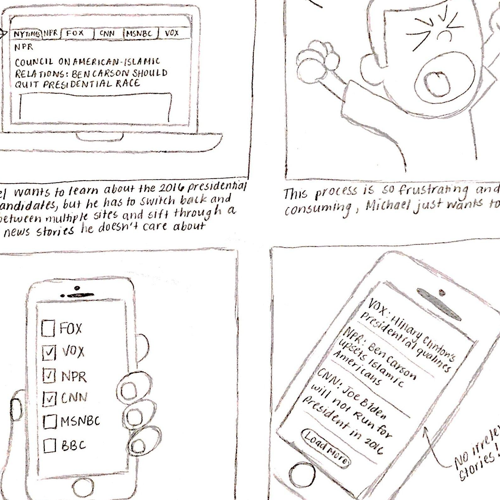 NYTIMES NPR FOX CNN MSNBC VOX
NPR
COUNCIL ON AMERICAN-ISLAMIC
RELATIONS: BEN CARSON SHOULD
QUIT PRESIDENTIAL RACE
wants to learn about the 2016 presidential
candidates, but he has to switch back and
between multiple sites and sift through a
news stories he doesn't care about
This process is so frustrating and
consuming, Michael just wants to
FOX
VOX
NPR
CNN
MSNBC
BBC
VOX: Hillary Clinton's
presidential qualities
NPR: Ben Carson
upsets Islamic
Americans
CNN: Joe Biden
will not run for
president in 2016
Load More
No
stories!